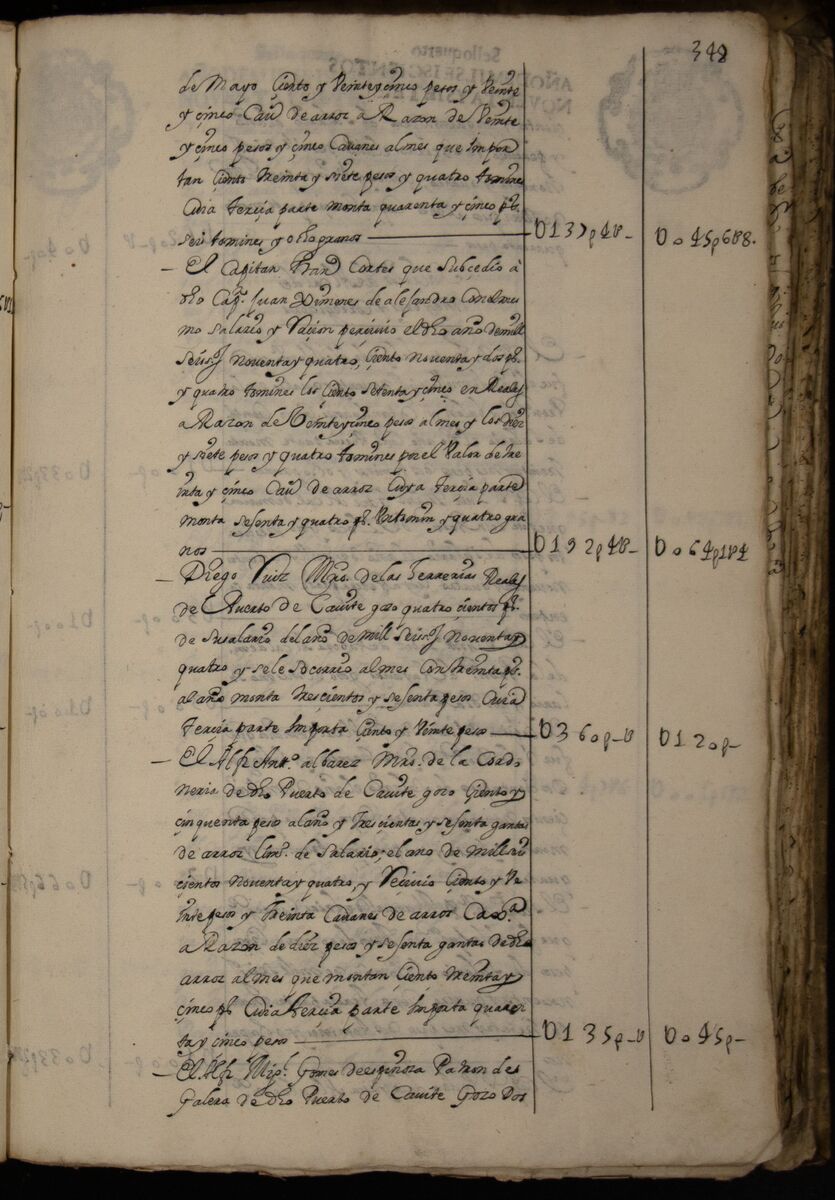 348
de Mayo çiento y Veinte y çinco pesos y Veinte
y çinco Cau.s de arroz a Razon de Veinte
y çinco pesos y çinco Cauanes al mes que impor
tan çiento treinta y siete pesos y quatro tomines
Cuia terçia parte monta quarenta y çinco p.s
seis tomines y ocho granos — U137p4U- Uo45p6U8.
— El Capitan Fran.co Cortes que Subcedio â
dho Cap.n Juan Ximenes de alejandro Con el mis
mo salario y Racion perciuio el dho año de mill
seis.os Noventa y quatro, çiento noventa y dos p.s
y quatro tomines los çiento setenta y çinco en Reales
a Razon de Veinte y çinco pesos al mes y los diez
y siete pesos y quatro tomines por el Valor de tre
inta y çinco Cau.s de arroz Cuya terçia parte
monta sesenta y quatro p.s Un tomin y quatro gra
nos — U192p4U- Uo64p1U4
— Diego Ruiz Mro. de las Herrerias Reales
de el Puerto de Cauite gozo quatro çientos p.s
de su salario del año de mill seis.os Noventa y
quatro y se le socorrio al mes Con treinta p.s
al año monta trescientos y sesenta pesos Cuia
terçia parte importa çiento y Veinte pesos — U360p-U U120p-
— El Alf.z Ant.o albarez Mro. de la Cordo
neria de dho Puerto de Cauite gozo Çiento y
cinquenta pesos al año y trescientas y sesenta gantas
de arroz limp.o de salario, el año de mill seis
cientos noventa y quatro, y Reciuio Çiento y Ve
inte pesos y treinta Cauanes de arroz
a Razon de diez pesos y sesenta gantas de dho
arroz al mes que montan Çiento treinta y
çinco p.s Cuia terçia parte importa quaren
ta y cinco pesos — U135p-U Uo45p-
— El Alf.z Mig.l Gomes de espinosa Patron de
Galera de dho Puerto de Cauite Gozo Dos